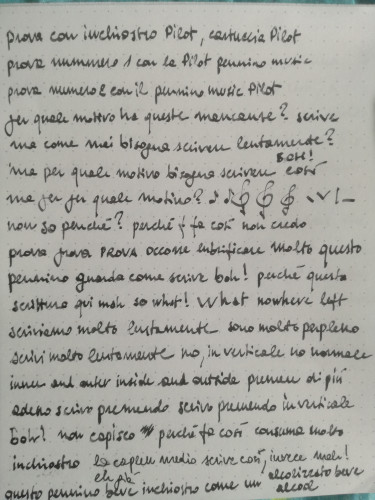 prova con inchiostro Pilot, cartuccia Pilot
prova nummero 1 con la Pilot pennino music
prova numero 2 con il pennino music Pilot
per quale motivo ha queste mancanze? scrive
ma come mai bisogna scrivere lentamente?
BOH!
ma per quale motivo bisogna scrivere così
ma per per quale motivo?
non so perché? perché fa così non credo
prova prova PROVA occorre lubrificare molto questo
pennino guarda come scrive boh! perché questa
scrittura qui mah so what! What nowhere left
scriviamo molto lentamente sono molto perplesso
scrivi molto lentamente no, in verticale no normale
inner and outer inside and outside premere di più
adesso scrivo premendo scrivo premendo in verticale
boh! non capisco perché fa così consuma molto
inchiostro la capless medio scrive così, invece mah!
questo pennino beve inchiostro come un alcolizzato beve
alcool